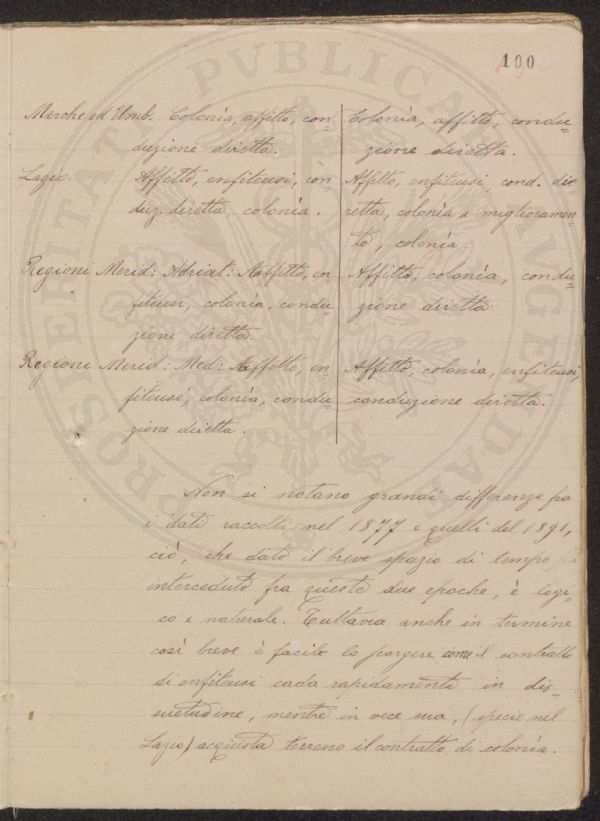 100
Marche ed Umb. Colonìa, affitto, con-
duzione diretta.
Colonìa, affitto, condu-
zione diretta.
Lazio. Affitto, enfiteusi, con-
duz. diretta, colonìa.
Affitto, enfiteusi, cond. di-
retta, colonìa a miglioramen-
to, colonìa.
Regioni Merid: Adriat: Affitto, en-
fiteusi, colonìa, condu-
zione diretta.
Affitto, colonìa, condu-
zione diretta.
Regioni Merid: Med: Affitto, en-
fiteusi, colonìa, condu-
zione diretta.
Affitto, colonìa, enfiteusi,
conduzione diretta.
Non si notano grandi differenze fra
i dati raccolti nel 1877 e quelli del 1891,
ciò, che dato il breve spazio di tempo
interceduto fra queste due epoche, è logi-
co e naturale. Tuttavia anche in termine
così breve è facile lo porgere come il contratto
di enfiteusi cada rapidamente in dis-
suetudine, mentre in vece sua, (specie nel
Lazio) acquista terreno il contratto di colonìa.
PROSPERITATI PVBLICAE AVGENDAE